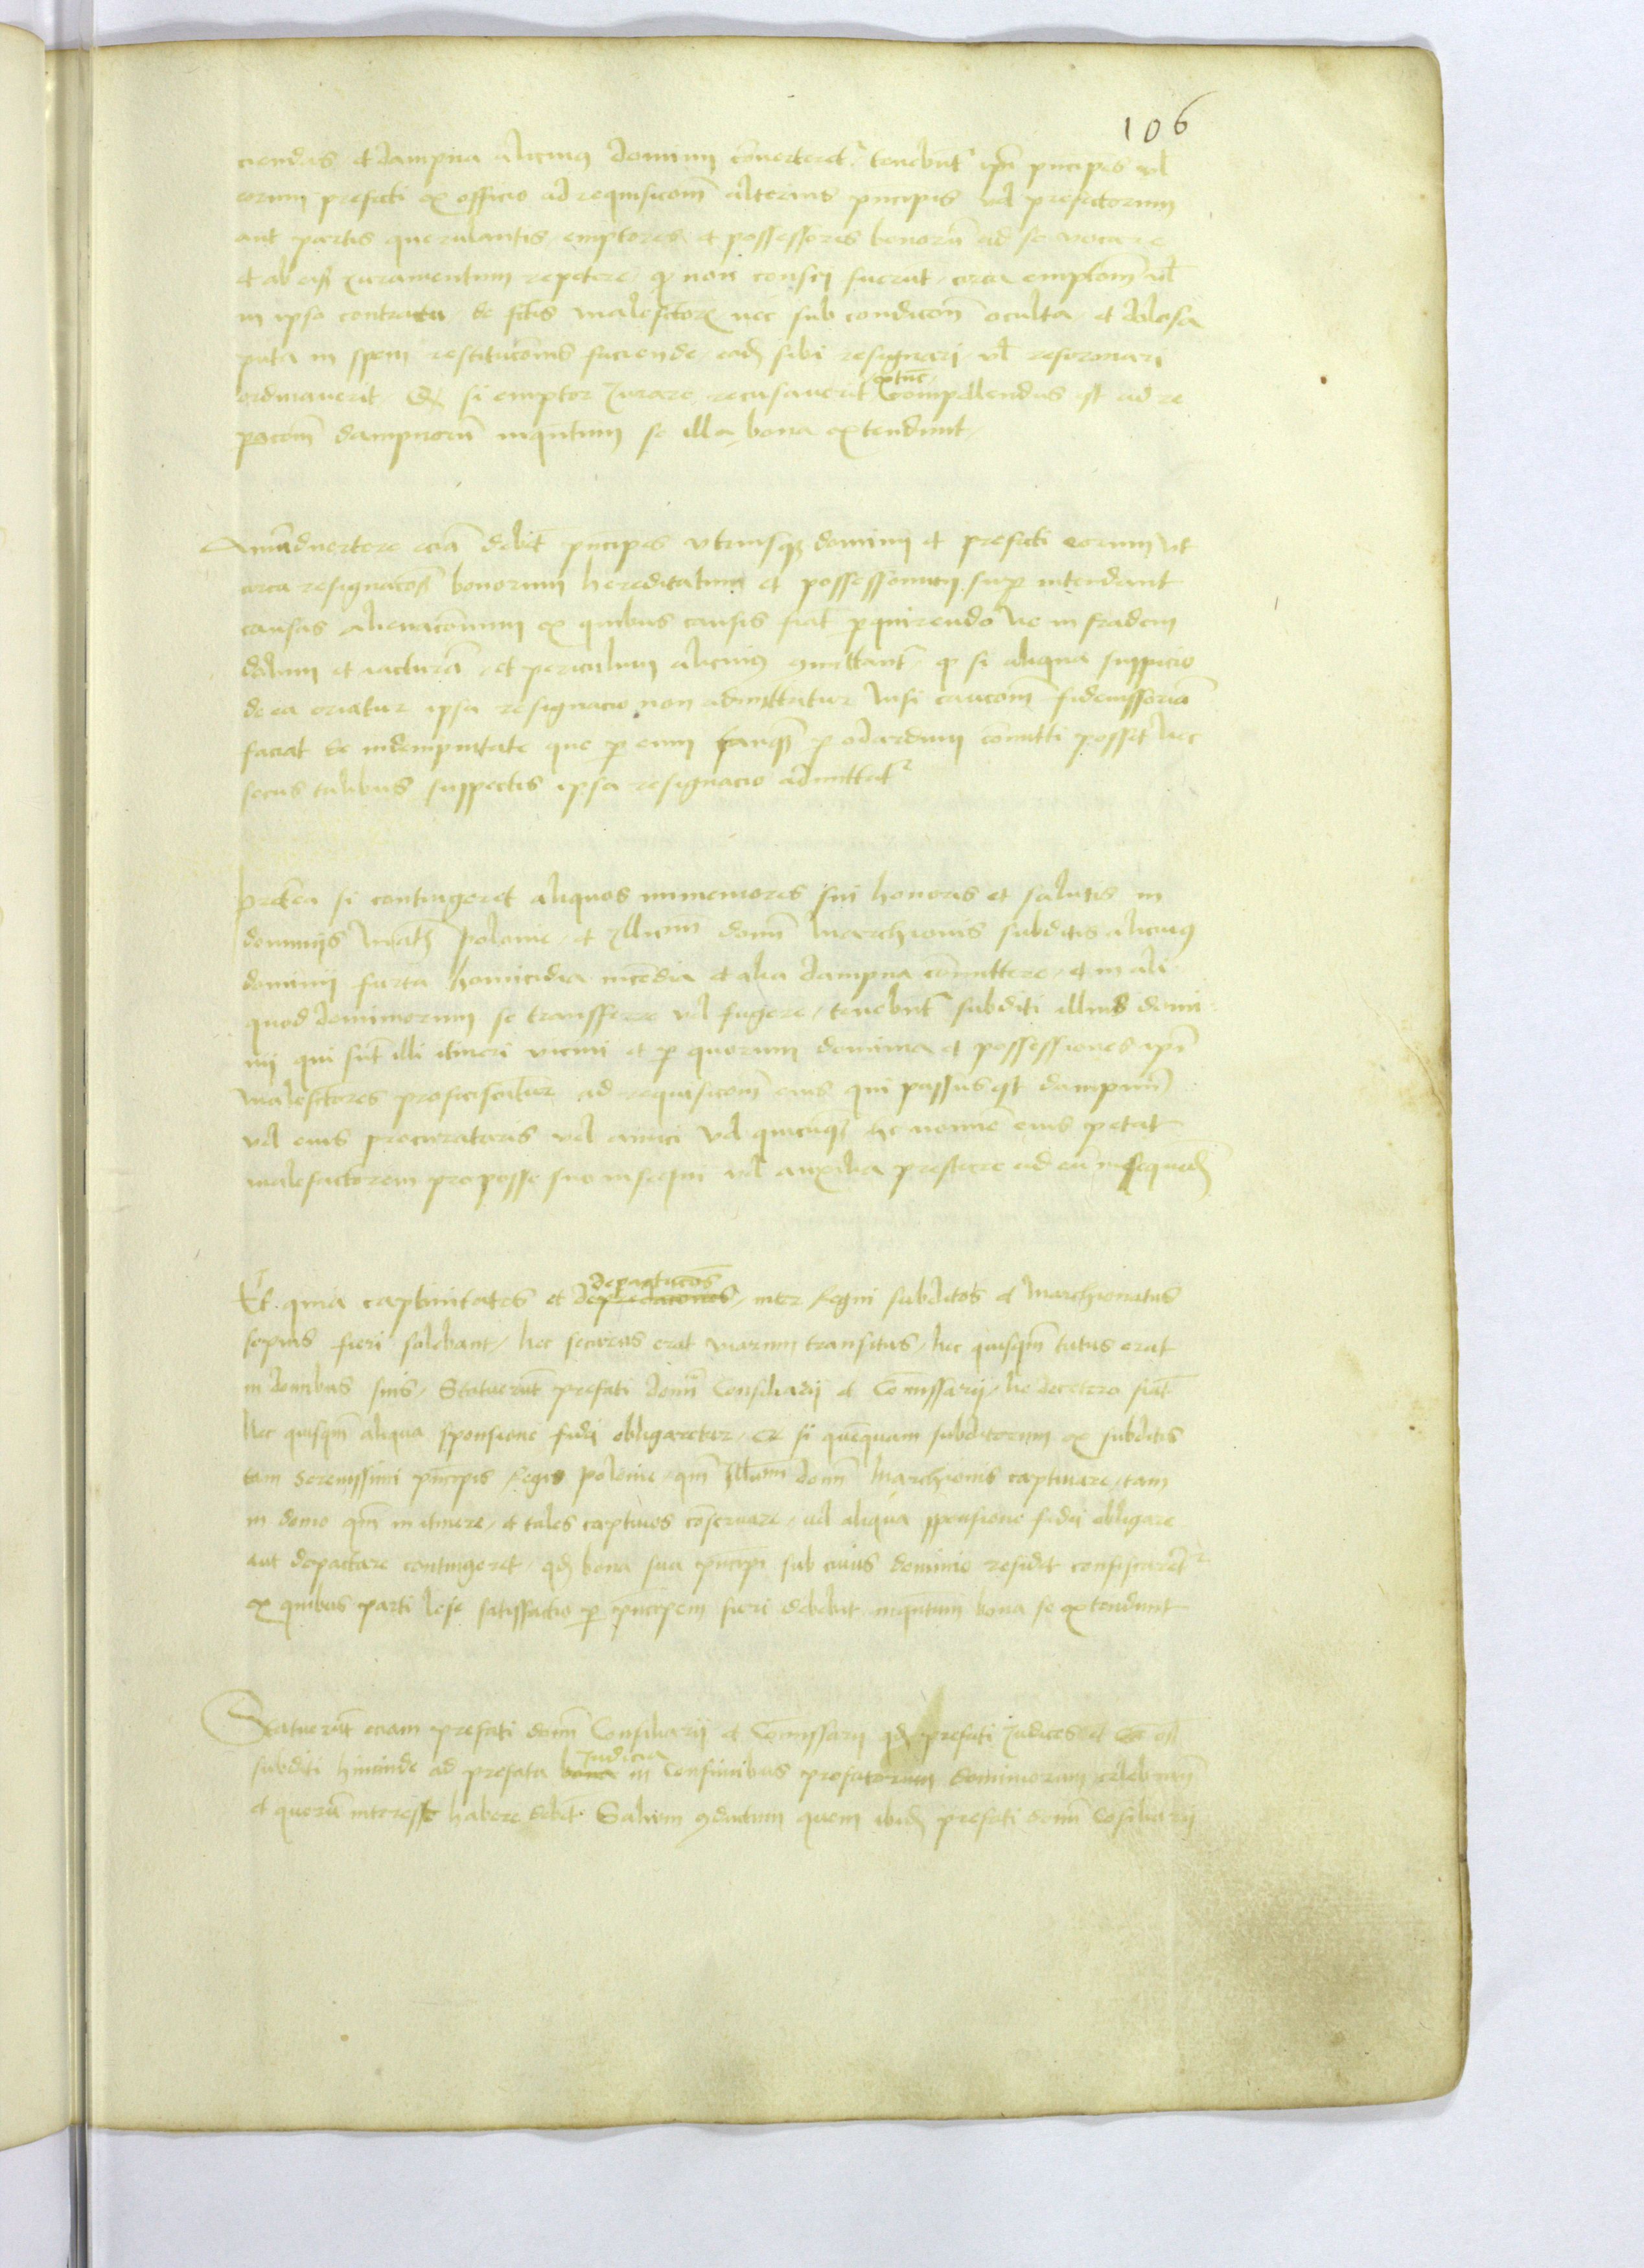 106
ciendas et dampna alicuius dominij co̅uerteret² tenebnt² ip̅i p̅ncipes vl̅
eorum prefecti ex officio ad requisicom̅ alterius p̅ncipis vel prefectorum
aut partis querulantis emptores et possessores bonoru̅ ad se vocare
et ab eis Juramentum repetere q non conscij fuerut circa emptom̅ vl̅
in ipso contractu de fctis malefctor nec sub condicom̅ oculta et dolosa
puta in spem restitucoms faciende eadz sibi resignari vl̅ reformari
ordinauerit Et si emptor Jurare recusauerit extu̅c compellendus est ad re
pacom̅ dampnoru̅ inqntum se illa bona extendunt
Anīaduertere ecia̅ debe̅t p̅ncipes vtriusqz dominij et prefecti eorum vt
circa resignacoe̅s bonorum hereditatum et possessionum sup intendant
causas alienaconum ex quibus causis fiat p̲quirendo ne in fradem
dolum et iactura̅ et periculum alicuius 9mittant² q si aliqua suspicio
de ea oriatur ipsa resignacio non admittatur Nisi caucom̅ fideiussoria̅
faciat de indempnitate que p eum tanqz p̲ comitti possit nec
secus talibus suspectis ipsa resignacio admittat²
Preterea si contingeret aliquos immemores sui honoris et salutis in
dominijs Polonie et Jllum dom̅ Marchionis subditis alicuius
dominij furta homicidia incendia et alia dampna co̅mittere et in ali
quod dominiorum se transferre vel fugere tenebnt² subditi illius domi
nij qui su̅t illi itineri vicini et p quorum dominia et possessiones ip̅i
malefctores proficiscu̅tur ad requisicom̅ eius qui passus est dampnu̅
vel eius procuratoris vel amici vel quicu̅qz hc nomi̅e eius petat
malefactorem pro posse suo insequi vel auxilia prestare ad eu̅ insequedz
Et quia captiuitates et depredacones depactaco̅s inter Regni subditos et Marchionatus
sepius fieri solebant Nec securus erat viarum transitus Nec quisqm̅ tutus erat
in domibus suis Statuerut prefati dom̅ Consiliarij et Comissarij ne decetero fiat
Nec quisqm̅ aliqua sponsione fidei obligaretur Et si que̅quam subditorum ex subditis
tam Serenissimi p̅ncipis Regis Polonie qm̅ Jllum dom̅ Marchionis captiuare tam
in domo qm̅ in itinere et tales captiuos co̅seruare vel aliqua sponsione fidei obligare
aut depactare contingeret qd bona sua p̅ncipi sub cuius dominio residet confiscare̅t²
ex quibus parti lese satisfactio p p̅ncipem fieri debebit inqntum bona se extendunt
Statueru̅t eciam prefati dom̅ Consiliarij et Comissarij qd prefati Judices et
subditi hincinde ad prefata bona Judicia in Confinibus prefatorum dominiorum celebran̅
et quoru̅ interest habere debe̅t Saluum 9ductum quem ibidz prefati dom̅ Cosiliarij